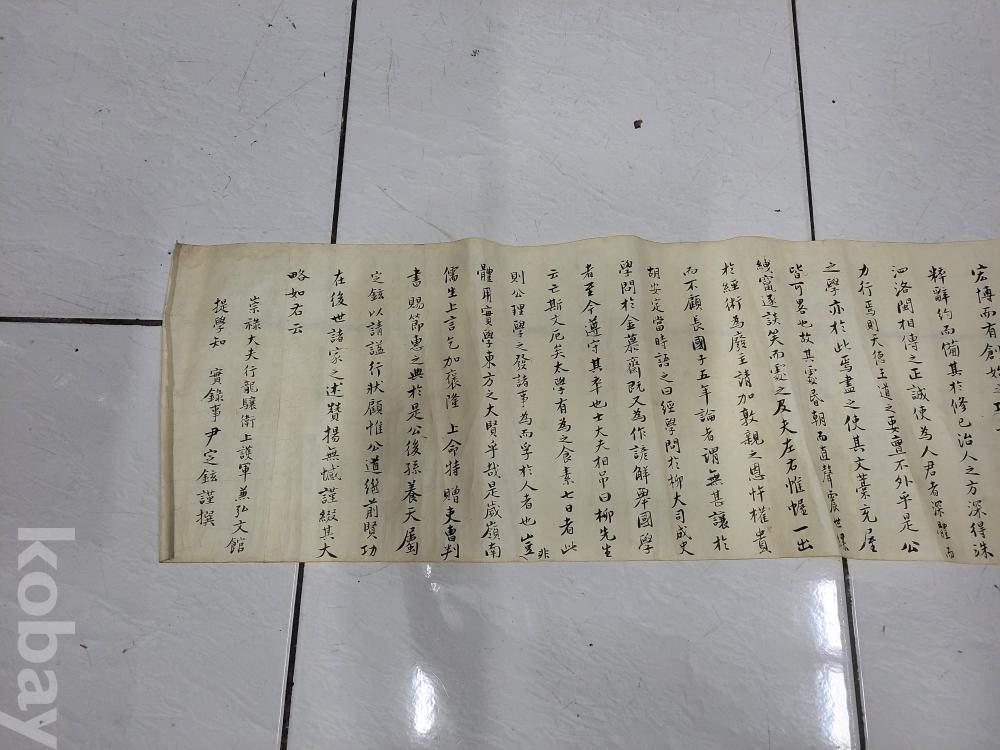 宏博而有創
粹辭約而備其於修己治人之方深得洙
泗洛閩相傳之正誠使為人君者深體而
力行焉則天德王道之要亶不外乎是公
之學亦於此焉盡之使其文藁充屋
皆可畧也故其處昏朝而直聲震世
縲寗遂談笑而處之及夫左右惟幄一出
於經術為廢主請加敦親之恩忤權貴
而不顧長國子五年論者謂無甚讓於
胡安定當時語之曰經學問於柳大司成史
學問於金慕齋既又為作諺解畢國學
者至今遵守其卒也士大夫相弔曰柳先生
云亡斯文厄矣太學有為之食素七日者此
則公理學之發諸事為而孚於人者也豈非
體用實學東方之大賢乎哉是歲嶺南
儒生上言乞加褒隆 上命特贈吏曹判
書賜節惠之典於是公後孫養天屬
定鉉以請謚行狀顧惟公道繼前賢功
在後世諸家之述贊揚無憾謹綴其大
略如右云
崇祿大夫行龍驤衛上護軍兼弘文館
提學知 實錄事尹定鉉謹撰
kobay